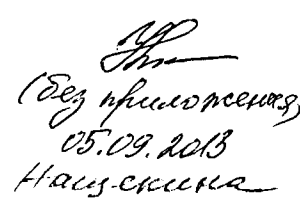 (без приложения)
05.09.2013
Нащекина